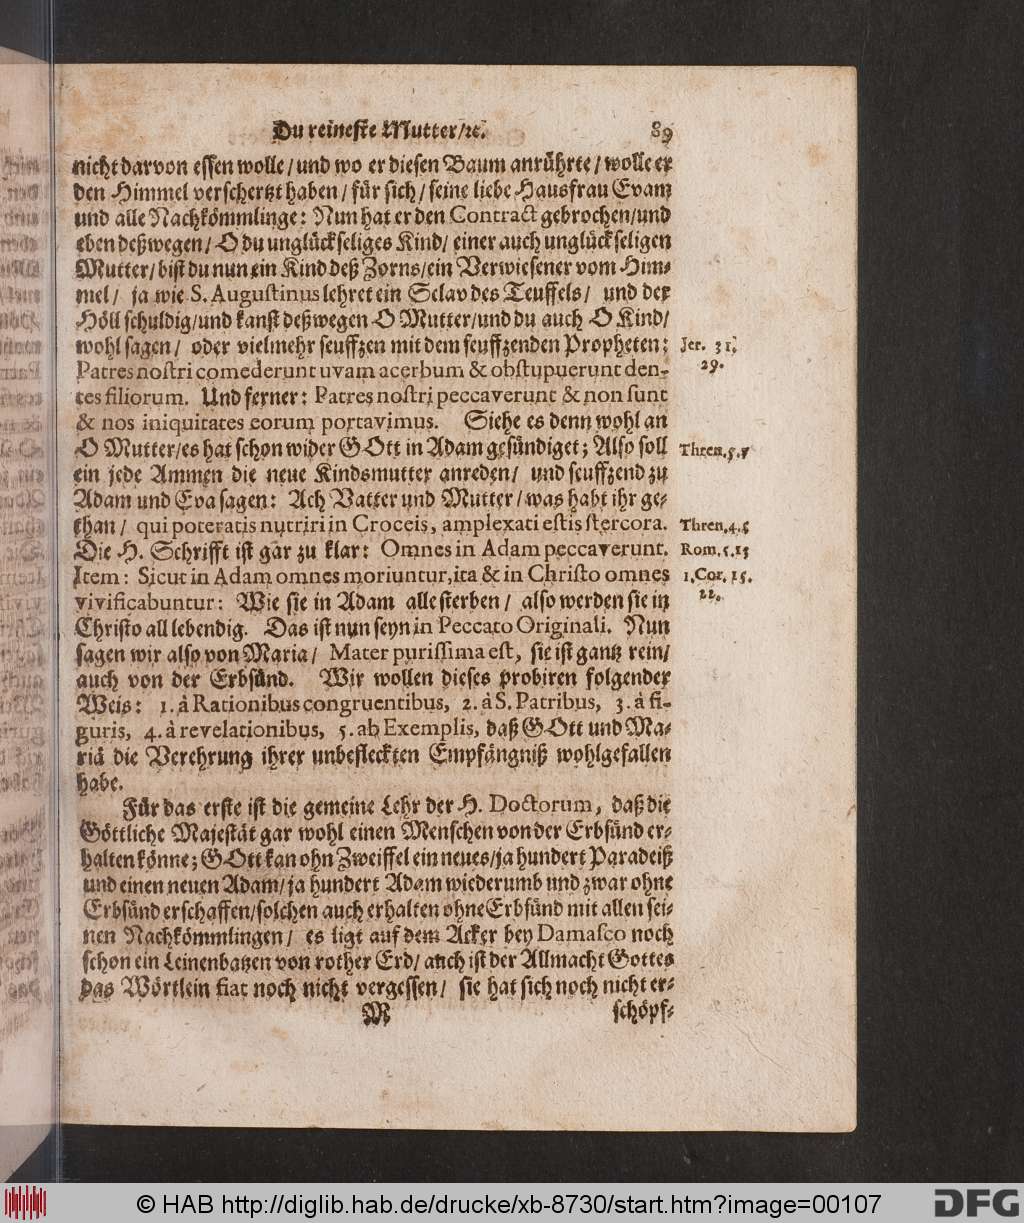 Du reineste Mutter/ꝛc. 89
nicht darvon essen wolle/und wo er diesen Baum anrührte/wolle er
den Himmel verschertzt haben/ für sich/ seine liebe Hausfrau Evam
und alle Nachkömmlinge: Nun hat er den Contract gebrochen/und
eben deßwegen/ O du unglückseliges Kind/ einer auch unglückseligen
Mutter/ bist du nun ein Kind deß Zorns/ein Verwiesener vom Him-
mel/ ja wie S. Augustinus lehret ein Sclav des Teuffels/ und der
Höll schuldig/und kanst deßwegen O Mutter/und du auch O Kind/
wohl sagen/ oder vielmehr seuffzen mit dem seuffzenden Propheten: Jer. 31.
Patres nostri comederunt uvam acerbum & obstupuerunt den- 29.
tes filiorum. Und ferner: Patres nostri peccaverunt & non sunt
& nos iniquitates eorum portavimus. Siehe es denn wohl an
O Mutter/es hat schon wider GOtt in Adam gesündiget; Also soll Thren. 5. 7
ein jede Ammen die neue Kindsmutter anreden/ und seuffzend zu
Adam und Eva sagen: Ach Vatter und Mutter/was habt ihr ge-
than/ qui poteratis nutriri in Croceis, amplexati estis stercora. Thren. 4. 5
Die H. Schrifft ist gar zu klar: Omnes in Adam peccaverunt. Rom. 5. 15
Item: Sicut in Adam omnes moriuntur, ita & in Christo omnes 1. Cor. 15.
vivificabuntur: Wie sie in Adam alle sterben/ also werden sie in 22.
Christo all lebendig. Das ist nun seyn in Peccato Originali. Nun
sagen wir also von Maria/ Mater purissima est, sie ist gantz rein/
auch von der Erbsünd. Wir wollen dieses probiren folgender
Weis: 1. à Rationibus congruentibus, 2. à S. Patribus, 3. à fi-
guris, 4. à revelationibus, 5. ab Exemplis, daß GOtt und Ma-
riä die Verehrung ihrer unbefleckten Empfängniß wohlgefallen
habe.
Für das erste ist die gemeine Lehr der H. Doctorum, daß die
Göttliche Majestät gar wohl einen Menschen von der Erbsünd er-
halten könne; GOtt kan ohn Zweiffel ein neues/ja hundert Paradeiß
und einen neuen Adam/ja hundert Adam wiederumb und zwar ohne
Erbsünd erschaffen/solchen auch erhalten ohne Erbsünd mit allen sei-
nen Nachkömmlingen/ es ligt auf dem Acker bey Damasco noch
schon ein Leinenbatzen von rother Erd/ auch ist der Allmacht Gottes
das Wörtlein fiat noch nicht vergessen/ sie hat sich noch nicht er-
M schöpf-
© HAB http://diglib.hab.de/drucke/xb-8730/start.htm?image=00107 DFG